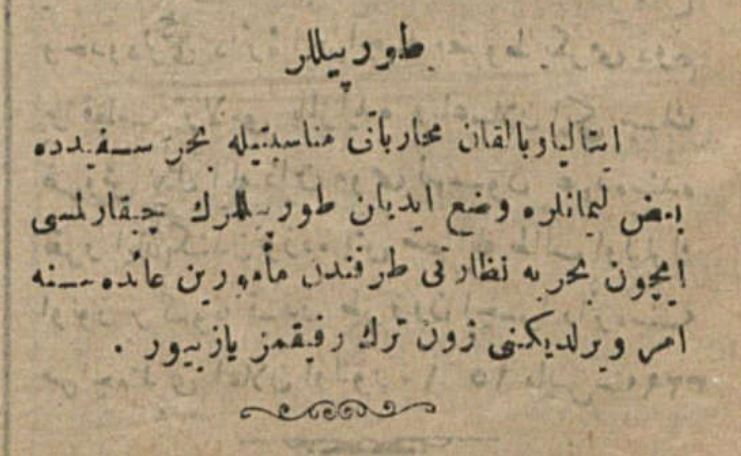 طورپيللر
ايتاليا وبالقان محارباتى مناسبتيله بحر سفيدده
بعض ليمانلره وضع ايديان طورپيللرك چيقارلمسى
ايچون بحريه نظارتى طرفندن مأمورين عائده سنه
امر ويرلديكنى ژون ترك رفيقمز يازييور .